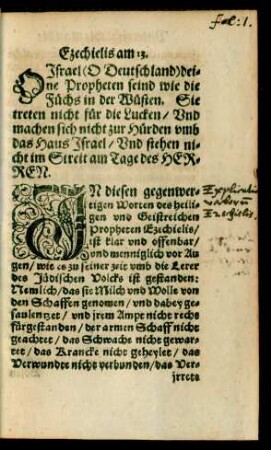 fol: 1.
Ezechielis am 13.
O Israel (O Deutschland) dei-
ne Propheten seind wie die
Füchs in der Wüsten. Sie
treten nicht für die Lucken / Vnd
machen sich nicht zur Hürden vmb
das Haus Israel / Vnd stehen ni-
cht im Streit am Tage des HER-
REN.
IN diesen gegenwer-
tigen Worten des heili-
gen vnd Geistreichen
Propheten Ezechielis /
ist klar vnd offenbar /
vnd menniglich vor Au-
gen / wie es zu seiner zeit vmb die Lerer
des Jüdischen Volcks ist gestanden:
Nemlich / das sie Milch vnd Wolle von
den Schaffen genomen / vnd dabey ge-
faulentzet / vnd jrem Ampt nicht rechs
fürgestanden / der armen Schaff nicht
geachtet / das Schwache nicht gewar-
tet / das Krancke nicht geheylet / das
Verwundte nicht verbunden / das Ver-
jrrete
Explicatio
verborum
Ezechielis.